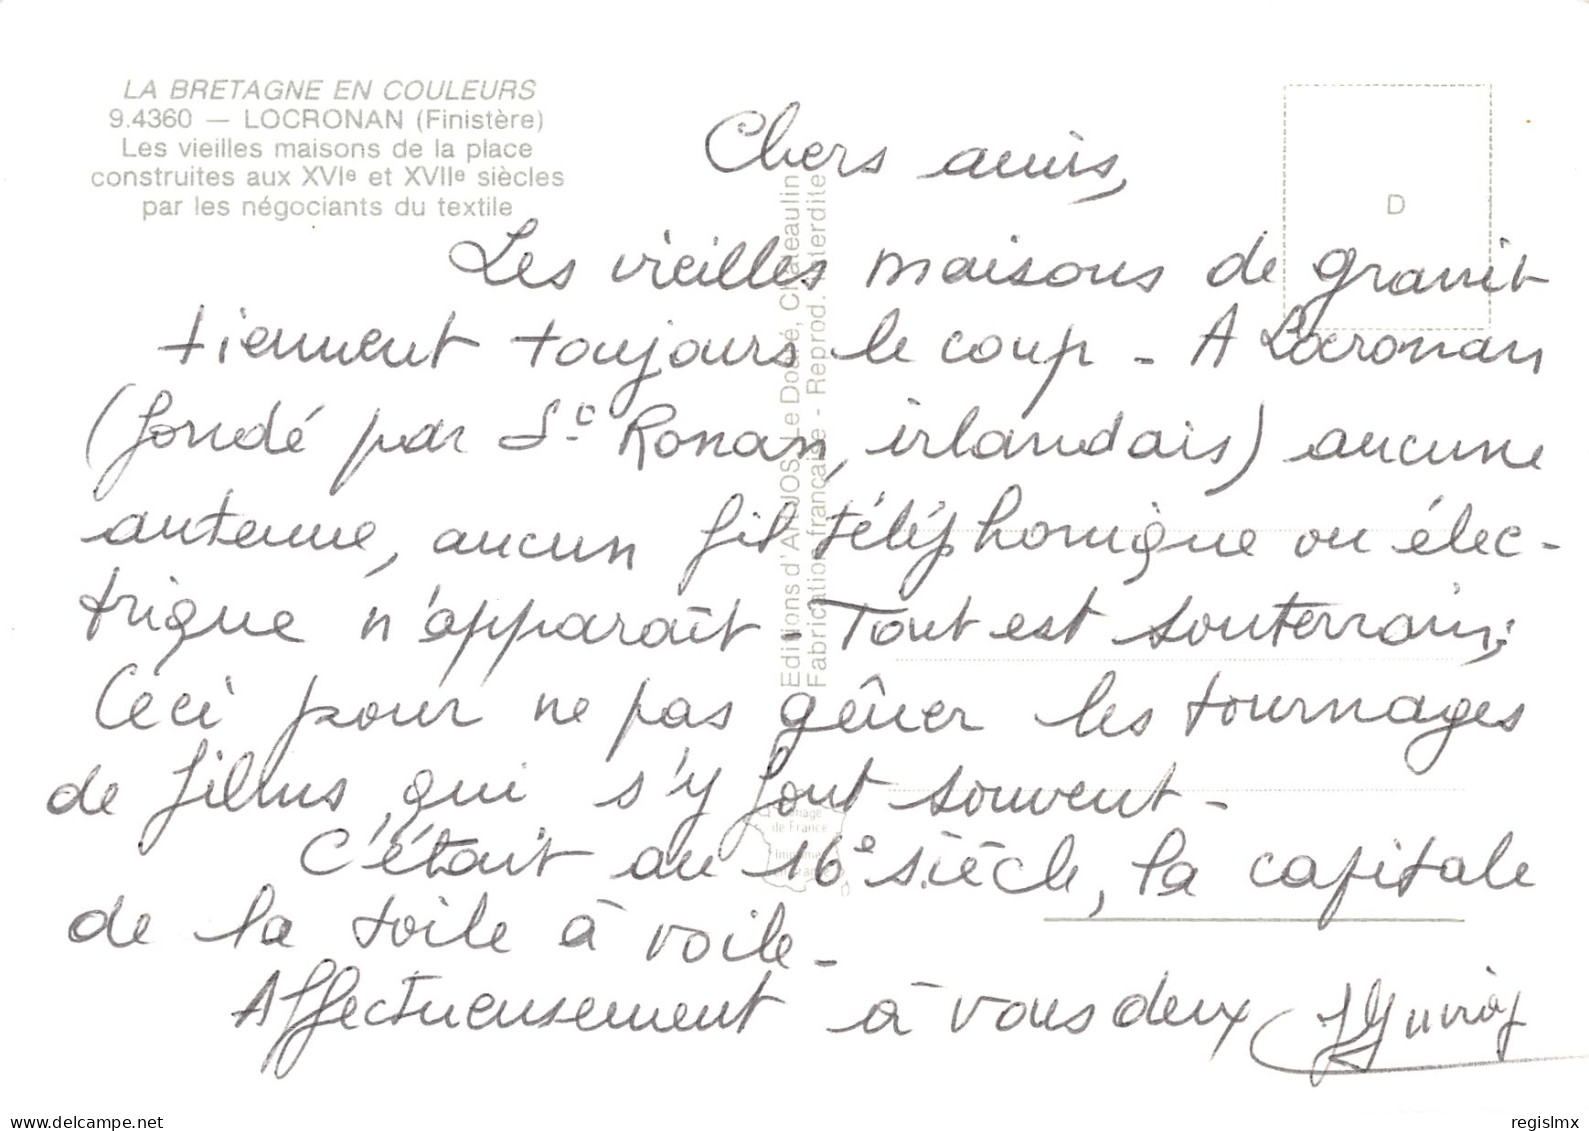 LA BRETAGNE EN COULEURS
9.4360 — LOCRONAN (Finistère)
Les vieilles maisons de la place
construites aux XVIe et XVIIe siècles
par les négociants du textile
D
Editions d'Art JOS Le Doaré, Châteaulin
Fabrication française - Reprod. interdite
Chers amis,
Les vieilles maisons de granit
tiennent toujours le coup - A Locronan
(fondé par St Ronan, irlandais) aucune
antenne, aucun fil téléphonique ou élec-
trique n'apparaît - Tout est souterrain;
Ceci pour ne pas gêner les tournages
de films, qui s'y font souvent -
C'était au 16e siècle, la capitale
de la toile à voile -
Affectueusement à vous deux
de France
regislmx